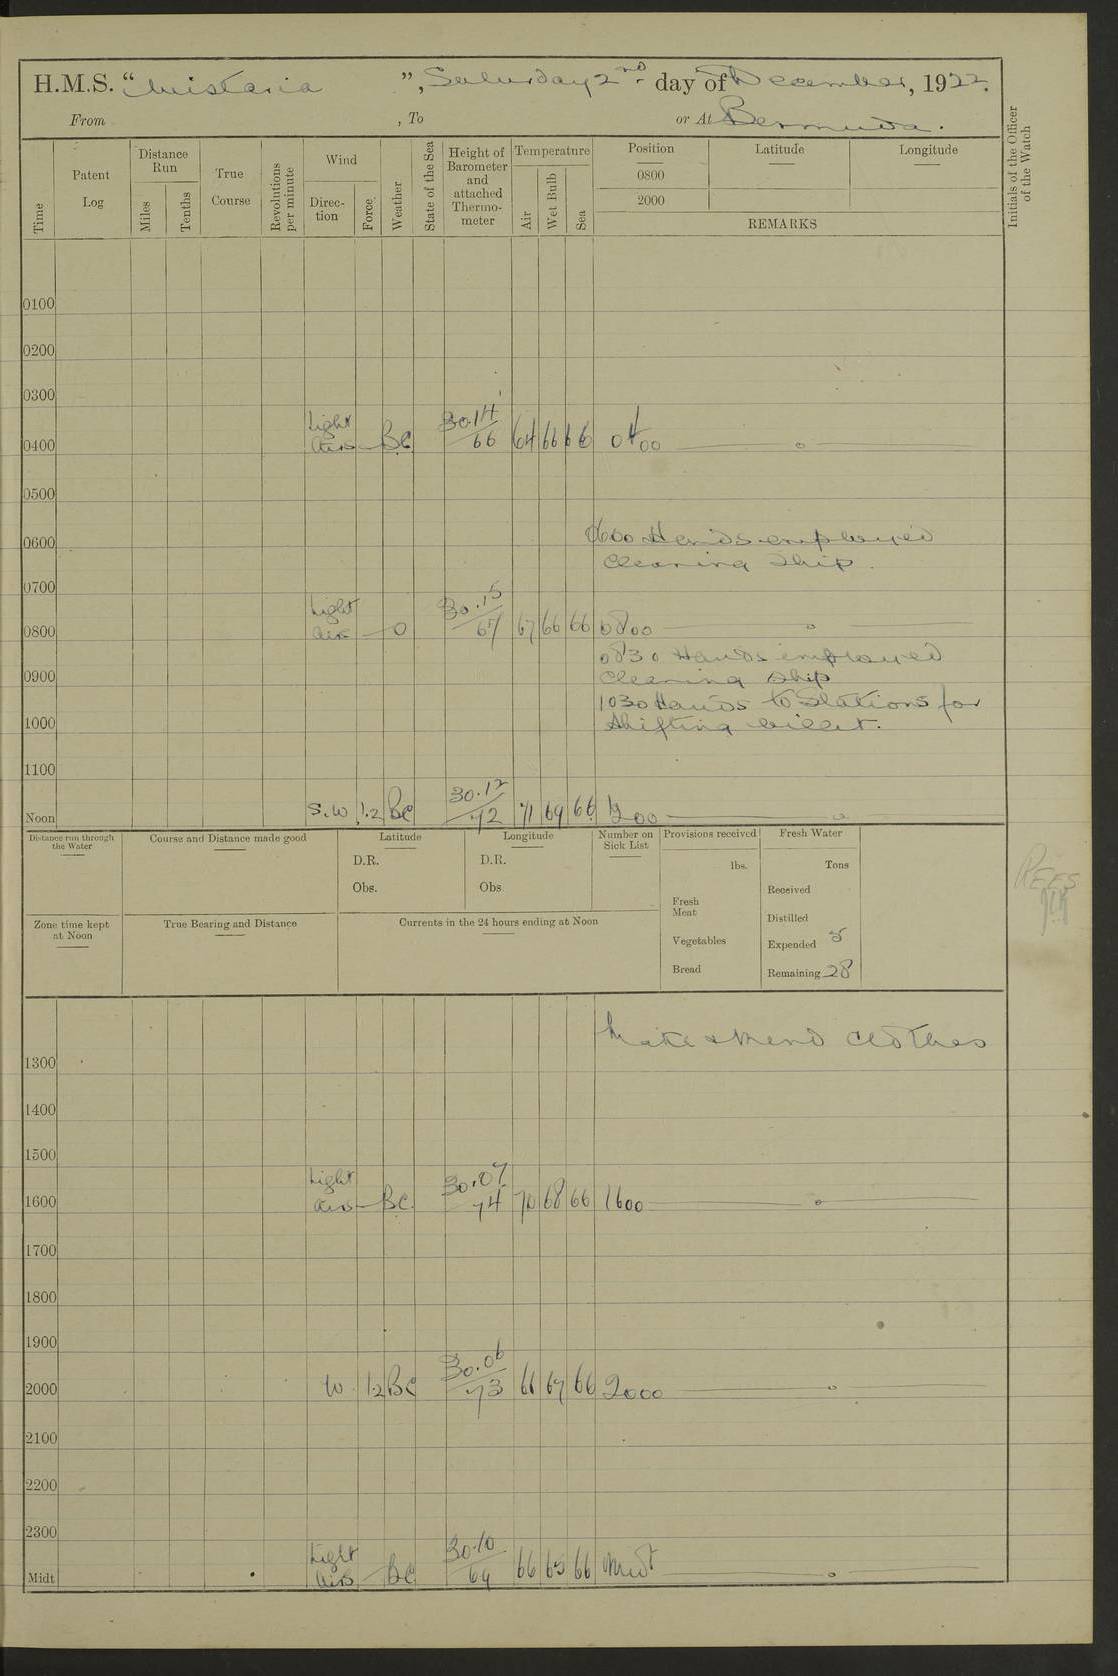 H.M.S. “Wistaria”, Saturday 2nd day of December, 1922.
From , To or At Bermuda.
Time
Patent Log
Distance Run
Miles
Tenths
True Course
Revolutions per minute
Wind
Direction
Force
Weather
State of the Sea
Height of Barometer and attached Thermometer
Temperature
Air
Wet Bulb
Sea
Position
0800
2000
Latitude
Longitude
REMARKS
Initials of the Officer of the Watch
0100
0200
0300
0400 Light airs — BC 30.14/66 64 66 66 0400
0500
0600 0600 Hands employed
cleaning ship.
0700
0800 Light airs — O 30.15/67 67 66 66 0800
0830 Hands employed
0900 cleaning ship
1030 Hands to Stations for
1000 shifting billet.
1100
Noon S.W 1.2 BC 30.12/72 71 69 66 1200
Distance run through the Water
Course and Distance made good
Latitude
D.R.
Obs.
Longitude
D.R.
Obs
Number on Sick List
Provisions received
lbs.
Fresh Meat
Vegetables
Bread
Fresh Water
Tons
Received
Distilled
Expended 5
Remaining 28
REES
Zone time kept at Noon
True Bearing and Distance
Currents in the 24 hours ending at Noon
Make & Mend clothes
1300
1400
1500
1600 Light airs — BC 30.07/74 70 68 66 1600
1700
1800
1900
2000 W 1.2 BC 30.06/73 66 67 66 2000
2100
2200
2300
Midt Light airs — BC 30.10/69 66 65 66 Midt